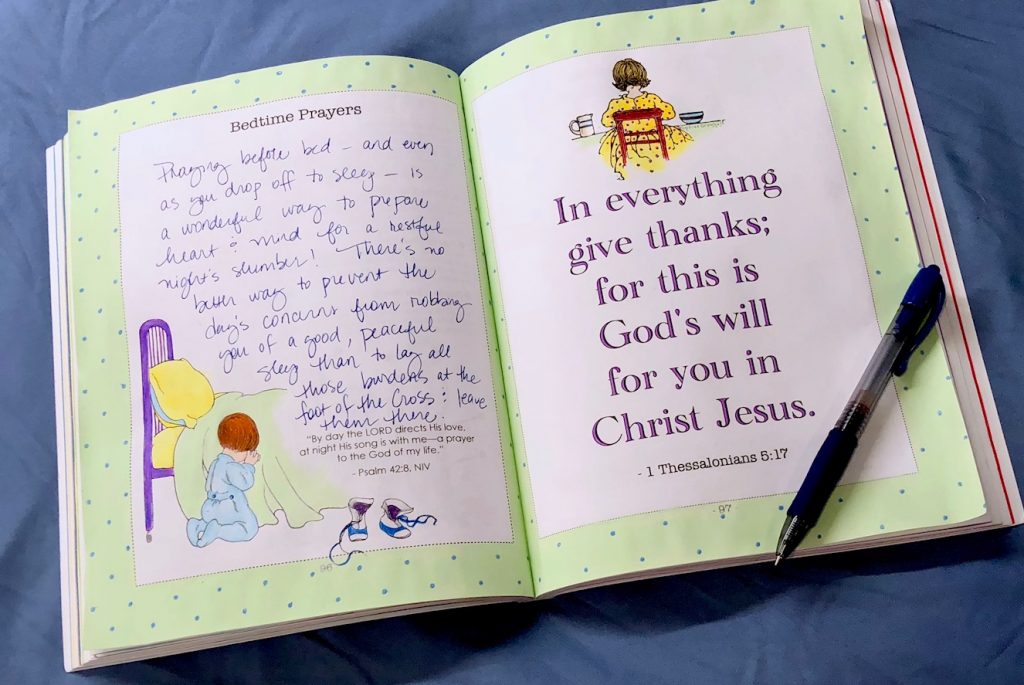 Bedtime Prayers
Praying before bed – and even
as you drop off to sleep – is
a wonderful way to prepare
heart & mind for a restful
night's slumber! There's no
better way to prevent the
day's concerns from robbing
you of a good, peaceful
sleep than to lay all
those burdens at the
foot of the Cross & leave
them there.
“By day the LORD directs His love,
at night His song is with me—a prayer
to the God of my life.”
- Psalm 42:8, NIV
96
In everything
give thanks;
for this is
God's will
for you in
Christ Jesus.
- 1 Thessalonians 5:17
97